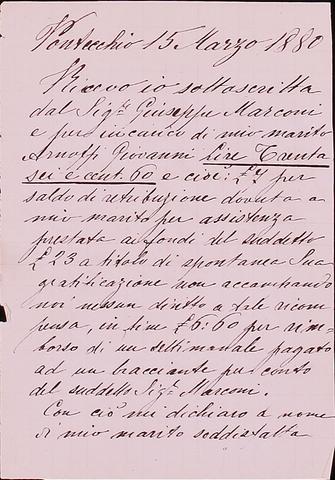 Pontecchio 15 Marzo 1880
Ricevo io sottoscritta
dal Sigʳ Giuseppe Marconi
e per incarico di mio marito
Arnoffi Giovanni Lire Trenta
sei e cent. 60 e cioè: £ 7 per
saldo di retribuzione dovuta a
mio marito per assistenza
prestata ai fondi del suddetto
£ 23 a titolo di spontanea Sua
gratificazione non accampando
noi nessun diritto a tale ricom
pensa, in fine £ 6:60 per rim-
borso di un settimanale pagato
ad un bracciante per conto
del suddetto Sigʳ Marconi.
Con ciò mi dichiaro a nome
di mio marito soddisfatta